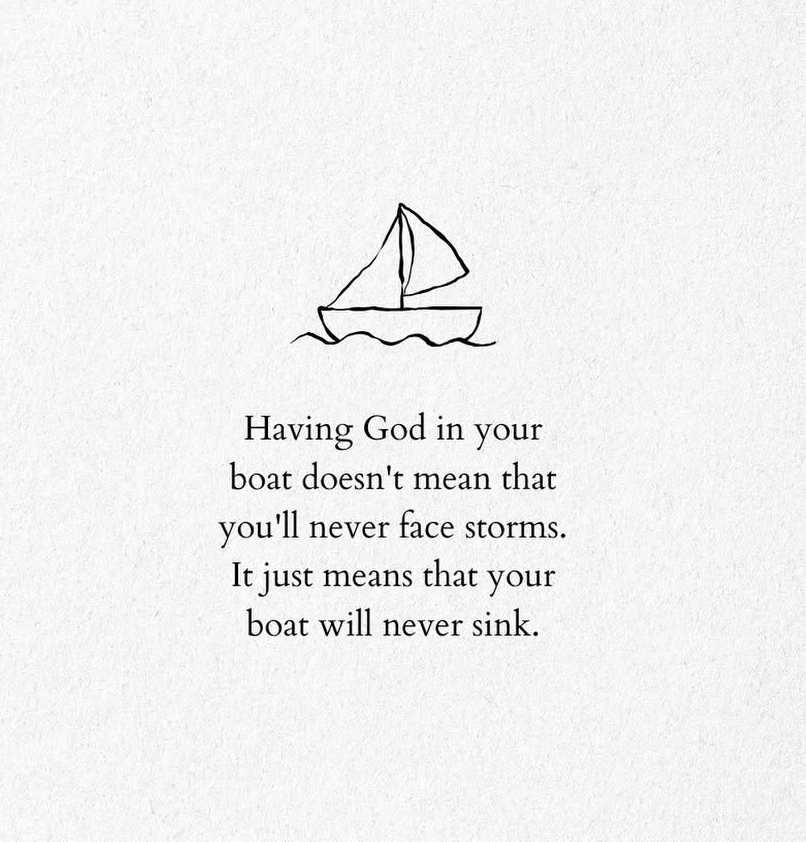 Having God in your
boat doesn't mean that
you'll never face storms.
It just means that your
boat will never sink.